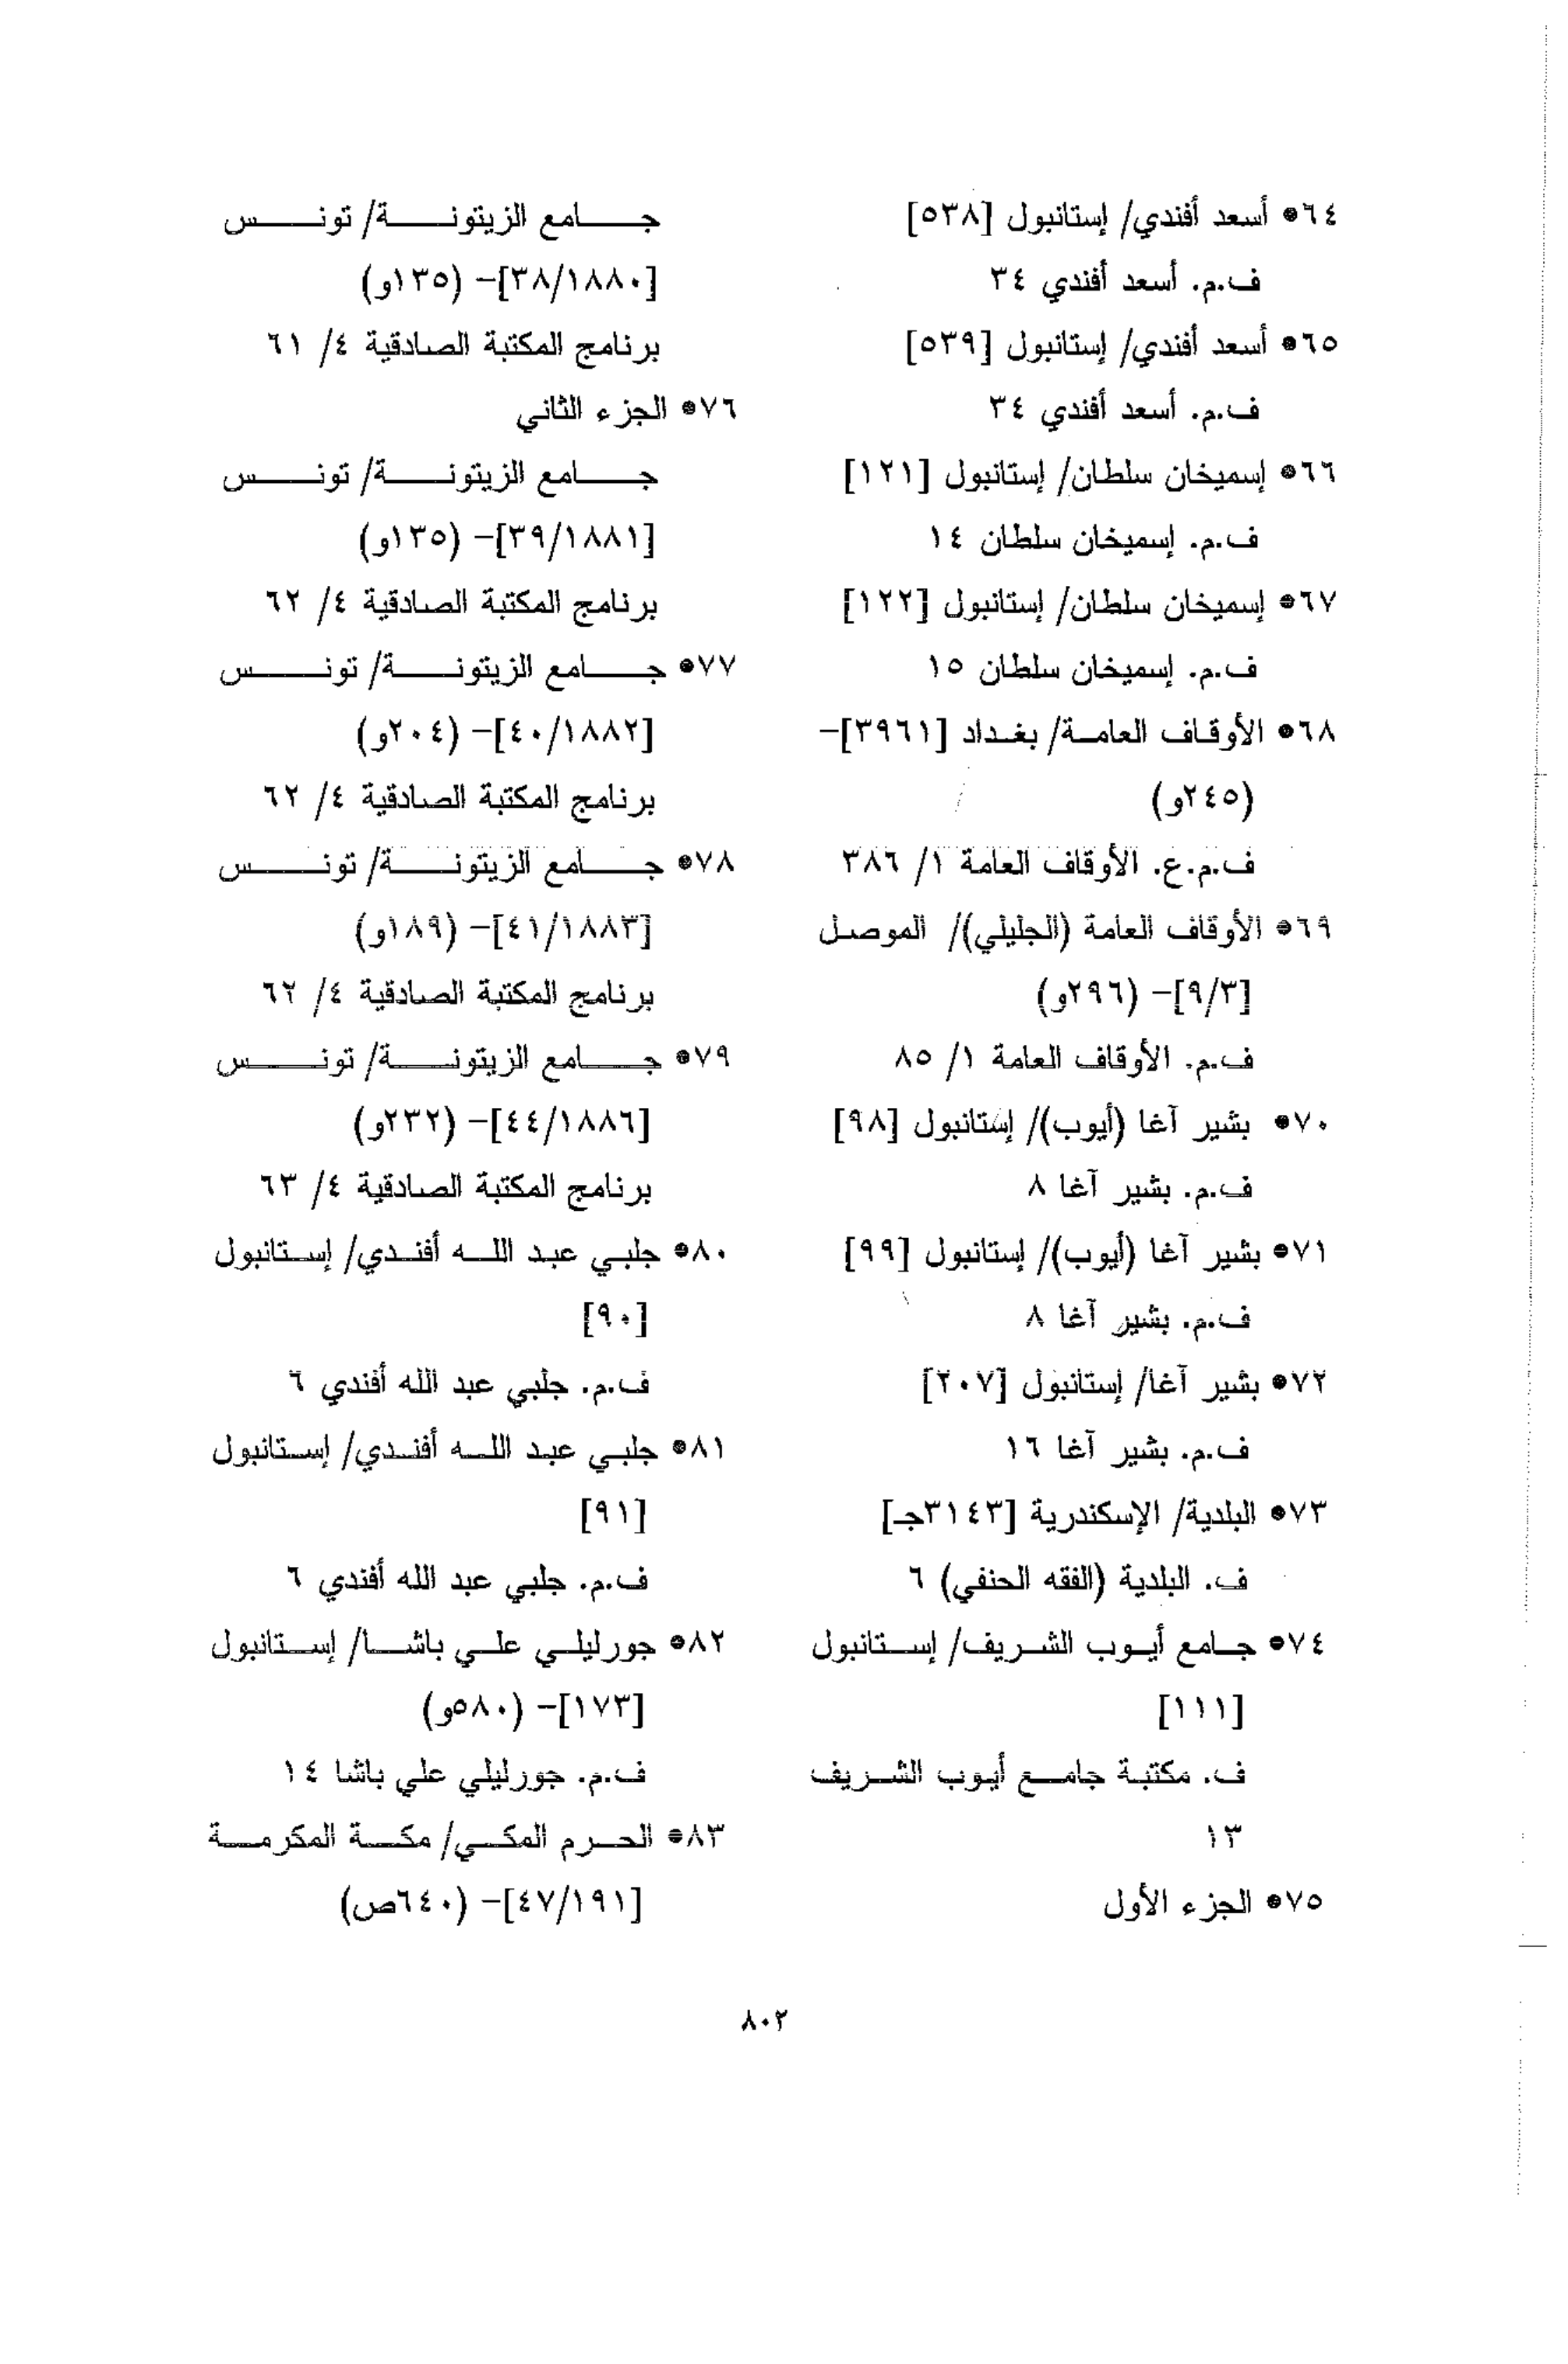 ٦٤• أسعد أفندي/ إستانبول [٥٣٨]
ف.م. أسعد أفندي ٣٤
٦٥• أسعد أفندي/ إستانبول [٥٣٩]
ف.م. أسعد أفندي ٣٤
٦٦• إسميخان سلطان/ إستانبول [١٢١]
ف.م. إسميخان سلطان ١٤
٦٧• إسميخان سلطان/ إستانبول [١٢٢]
ف.م. إسميخان سلطان ١٥
٦٨• الأوقاف العامة/ بغداد [٣٩٦١]-
(٢٤٥و)
ف.م.ع. الأوقاف العامة ١/ ٣٨٦
٦٩• الأوقاف العامة (الجليلي)/ الموصل
[٩/٣]- (٢٩٦و)
ف.م. الأوقاف العامة ١/ ٨٥
٧٠• بشير آغا (أيوب)/ إستانبول [٩٨]
ف.م. بشير آغا ٨
٧١• بشير آغا (أيوب)/ إستانبول [٩٩]
ف.م. بشير آغا ٨
٧٢• بشير آغا/ إستانبول [٢٠٧]
ف.م. بشير آغا ١٦
٧٣• البلدية/ الإسكندرية [٣١٤٣جـ]
ف. البلدية (الفقه الحنفي) ٦
٧٤• جامع أيوب الشريف/ إستانبول
[١١١]
ف. مكتبة جامع أيوب الشريف
١٣
٧٥• الجزء الأول
جامع الزيتونة/ تونس
[٣٨/١٨٨٠]- (١٣٥و)
برنامج المكتبة الصادقية ٤/ ٦١
٧٦• الجزء الثاني
جامع الزيتونة/ تونس
[٣٩/١٨٨١]- (١٣٥و)
برنامج المكتبة الصادقية ٤/ ٦٢
٧٧• جامع الزيتونة/ تونس
[٤٠/١٨٨٢]- (٢٠٤و)
برنامج المكتبة الصادقية ٤/ ٦٢
٧٨• جامع الزيتونة/ تونس
[٤١/١٨٨٣]- (١٨٩و)
برنامج المكتبة الصادقية ٤/ ٦٢
٧٩• جامع الزيتونة/ تونس
[٤٤/١٨٨٦]- (٢٣٢و)
برنامج المكتبة الصادقية ٤/ ٦٣
٨٠• جلبي عبد الله أفندي/ إستانبول
[٩٠]
ف.م. جلبي عبد الله أفندي ٦
٨١• جلبي عبد الله أفندي/ إستانبول
[٩١]
ف.م. جلبي عبد الله أفندي ٦
٨٢• جورليلي علي باشا/ إستانبول
[١٧٣]- (٥٨٠و)
ف.م. جورليلي علي باشا ١٤
٨٣• الحرم المكي/ مكة المكرمة
[٤٧/١٩١]- (٦٤٠ص)
٨٠٢